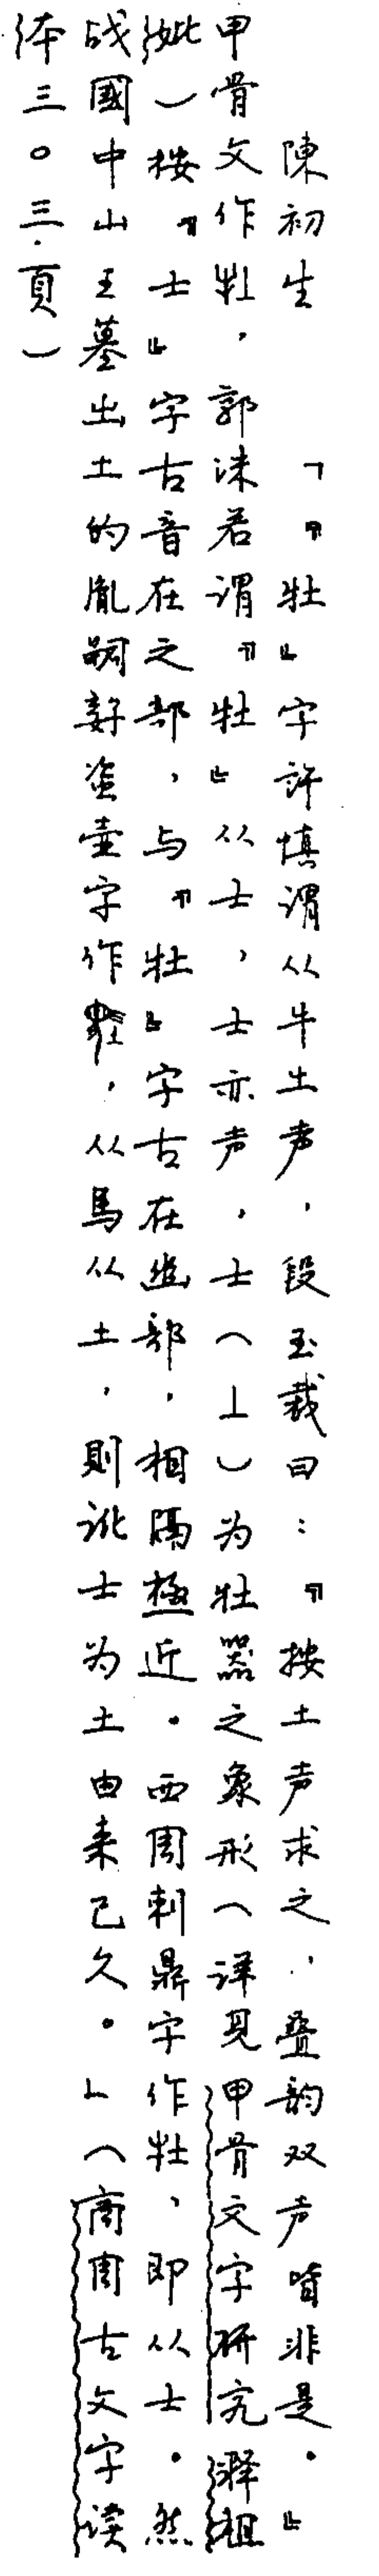 陳初生　「『牡』字許慎谓从牛土声，段玉裁曰：『按土声求之，叠韵双声皆非是。』
甲骨文作牡，郭沫若谓『牡』从士，士亦声，士（⊥）为牡器之象形（详見甲骨文字研究释祖
妣）按『士』字古音在之部，与『牡』字古在幽部，相隔極近。西周剌鼎字作牡，即从士。然
战國中山王墓出土的胤嗣𡚬盗壷字作，从馬从土，則訛士为土由来已久。」（商周古文字读
本三〇三頁）